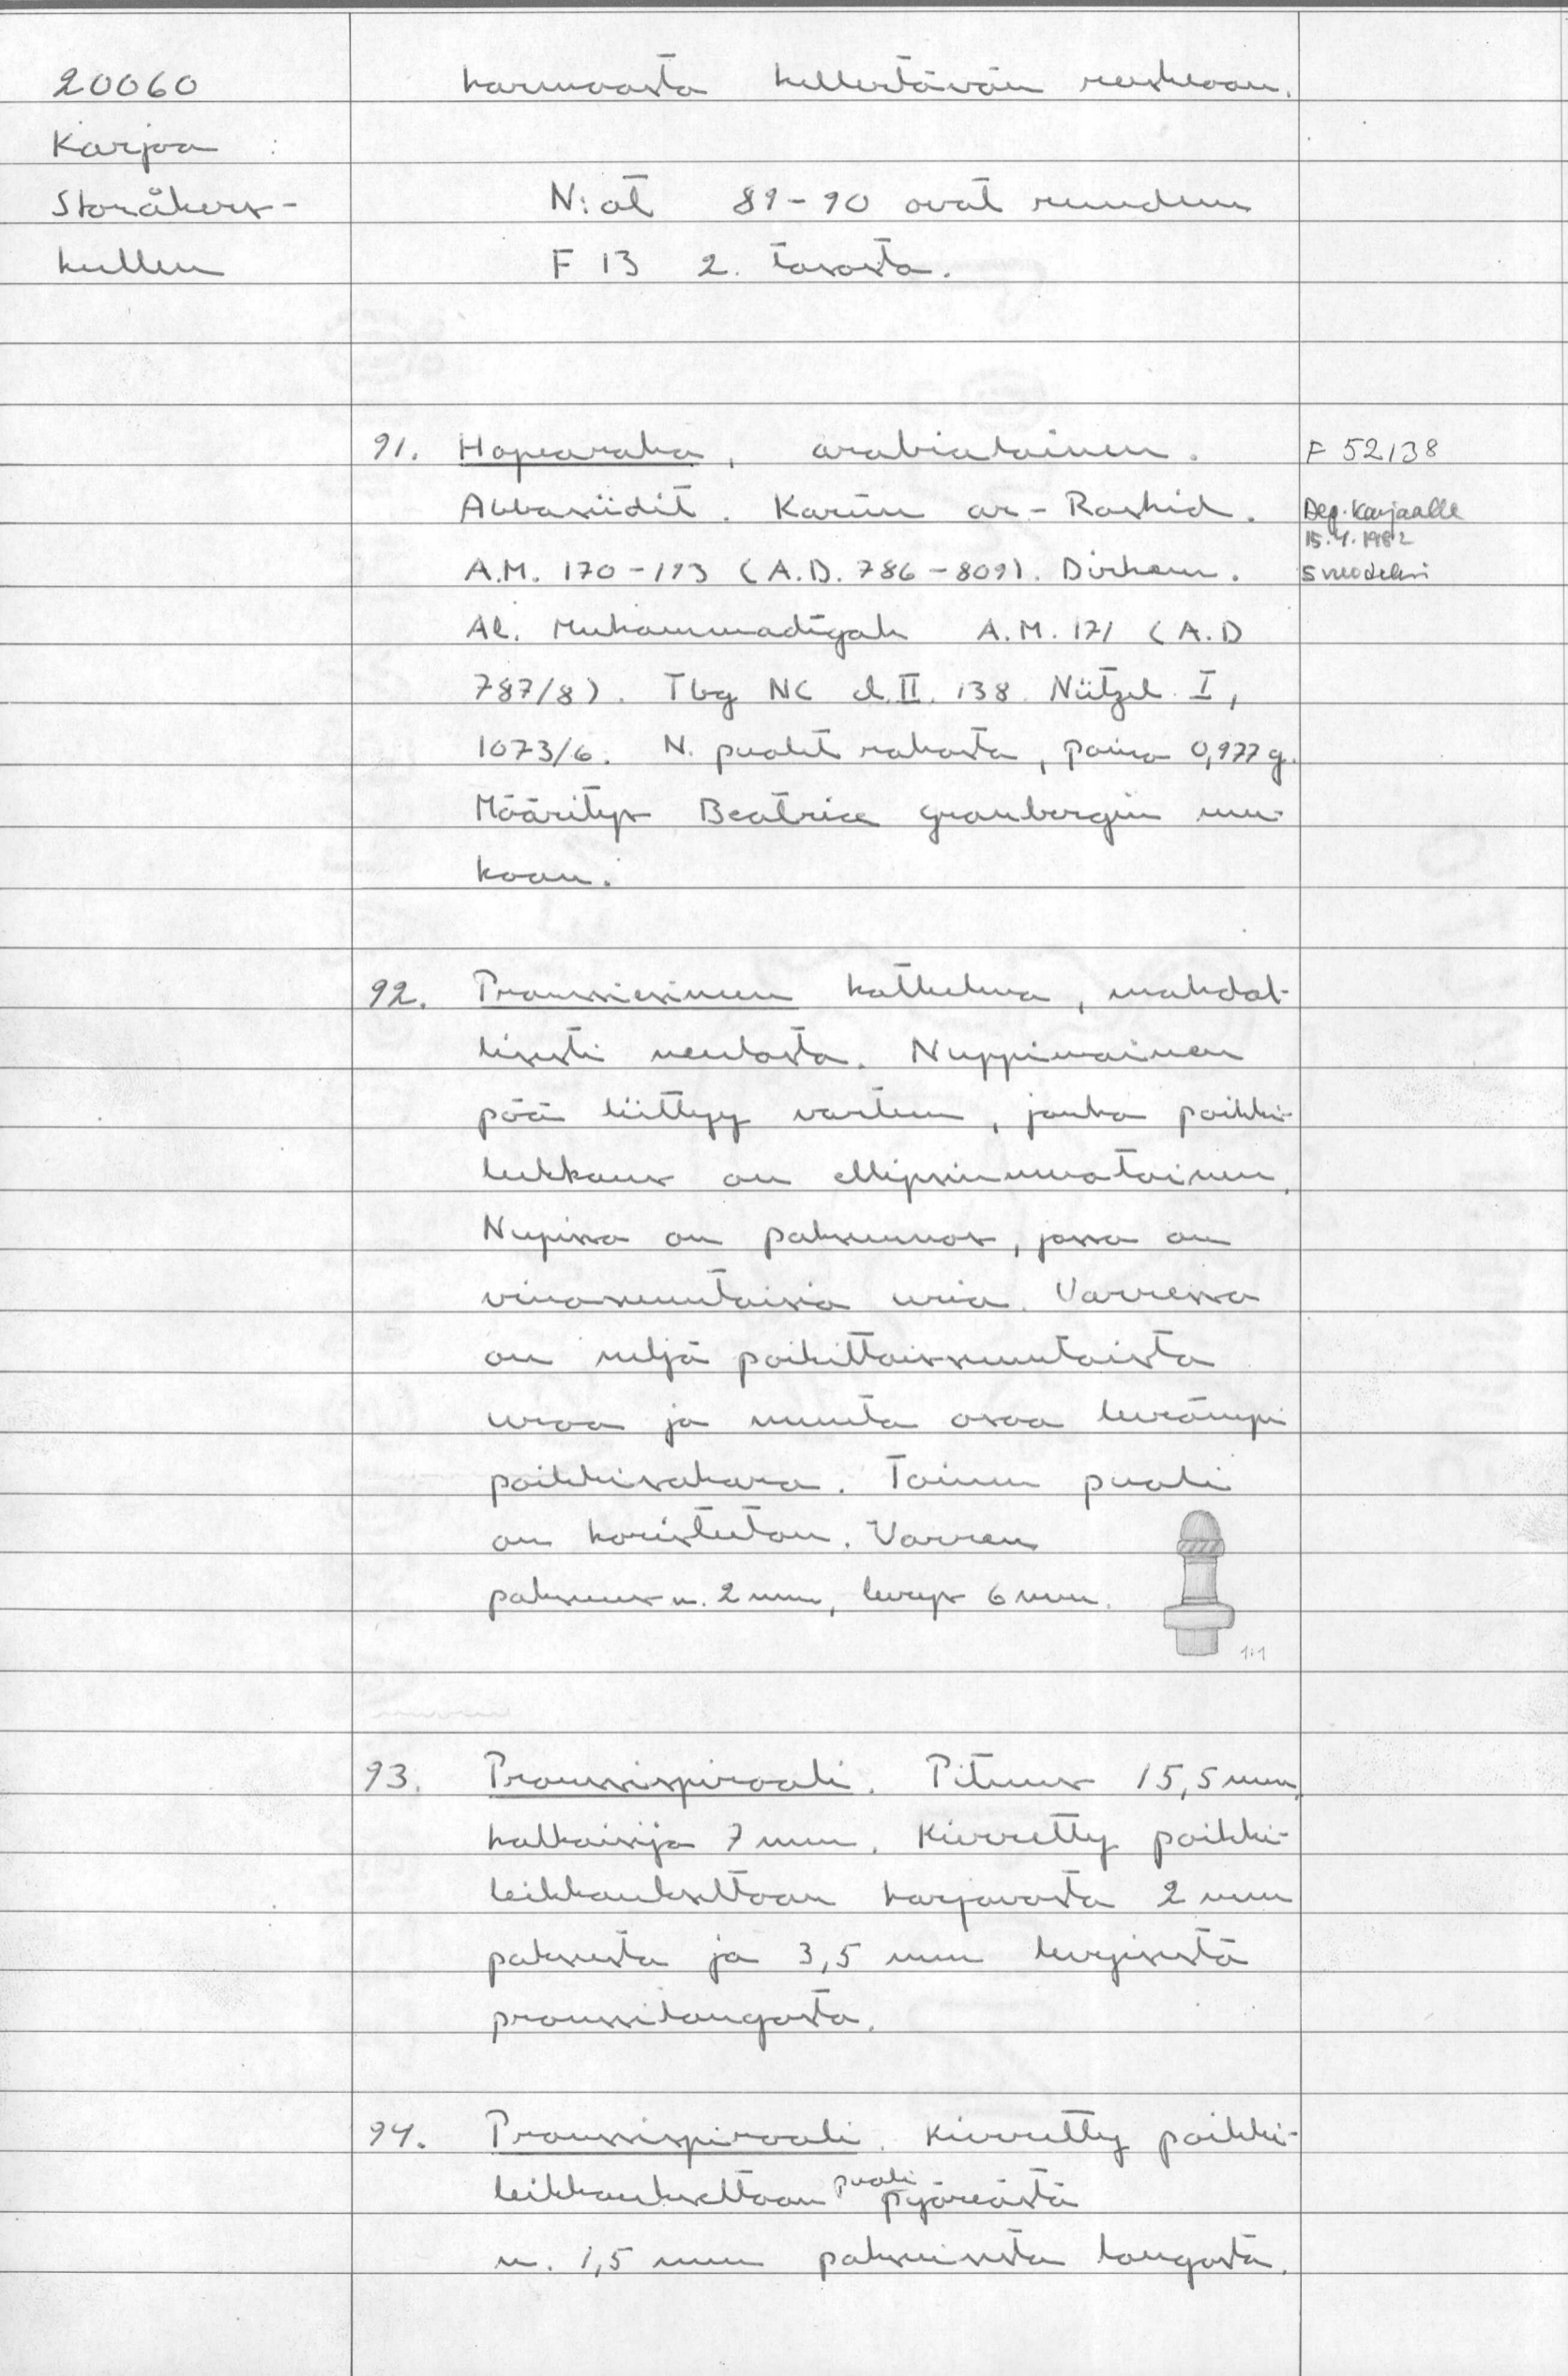 20060
Karjaa
Storåkers-
kullen
harmaasta kellertävän ruskeaan.
N:ot 89-90 ovat ruudun
F 13 2. tasosta.
91. Hopearaha, arabialainen.
Abbasiidit. Karun ar-Rashid.
A.M. 170-193 (A.D. 786-809). Dirhem.
Al. Muhammadigah A.M. 171 (A.D
787/8). Tbg NC d.II. 138. Nützel I,
1073/6. N. puolet rahasta, paino 0,977 g.
Määritys Beatrice Granbergin mu-
kaan.
F 52138
Dep. Karjaalle
15.4.1982
5 vuodeksi
92. Pronssiesineen katkelma, mahdol-
lisesti neulasta. Nuppimainen
pää liittyy varteen, jonka poikki-
leikkaus on ellipsinmuotoinen.
Nupissa on paksunnos, jossa on
vinosuuntaisia uria. Varressa
on neljä poikittaissuuntaista
uraa ja muuta osaa leveämpi
poikkisakara. Toinen puoli
on koristeeton. Varren
paksuus n. 2 mm, leveys 6 mm.
1:1
93. Pronssispiraali. Pituus 15,5 mm,
halkaisija 7 mm. Kierretty poikki-
leikkaukseltaan harjavasta 2 mm
paksusta ja 3,5 mm levyisestä
pronssitangosta.
94. Pronssispiraali. Kierretty poikki-
leikkaukseltaan puoli pyöreästä
n. 1,5 mm paksuisesta tangosta.